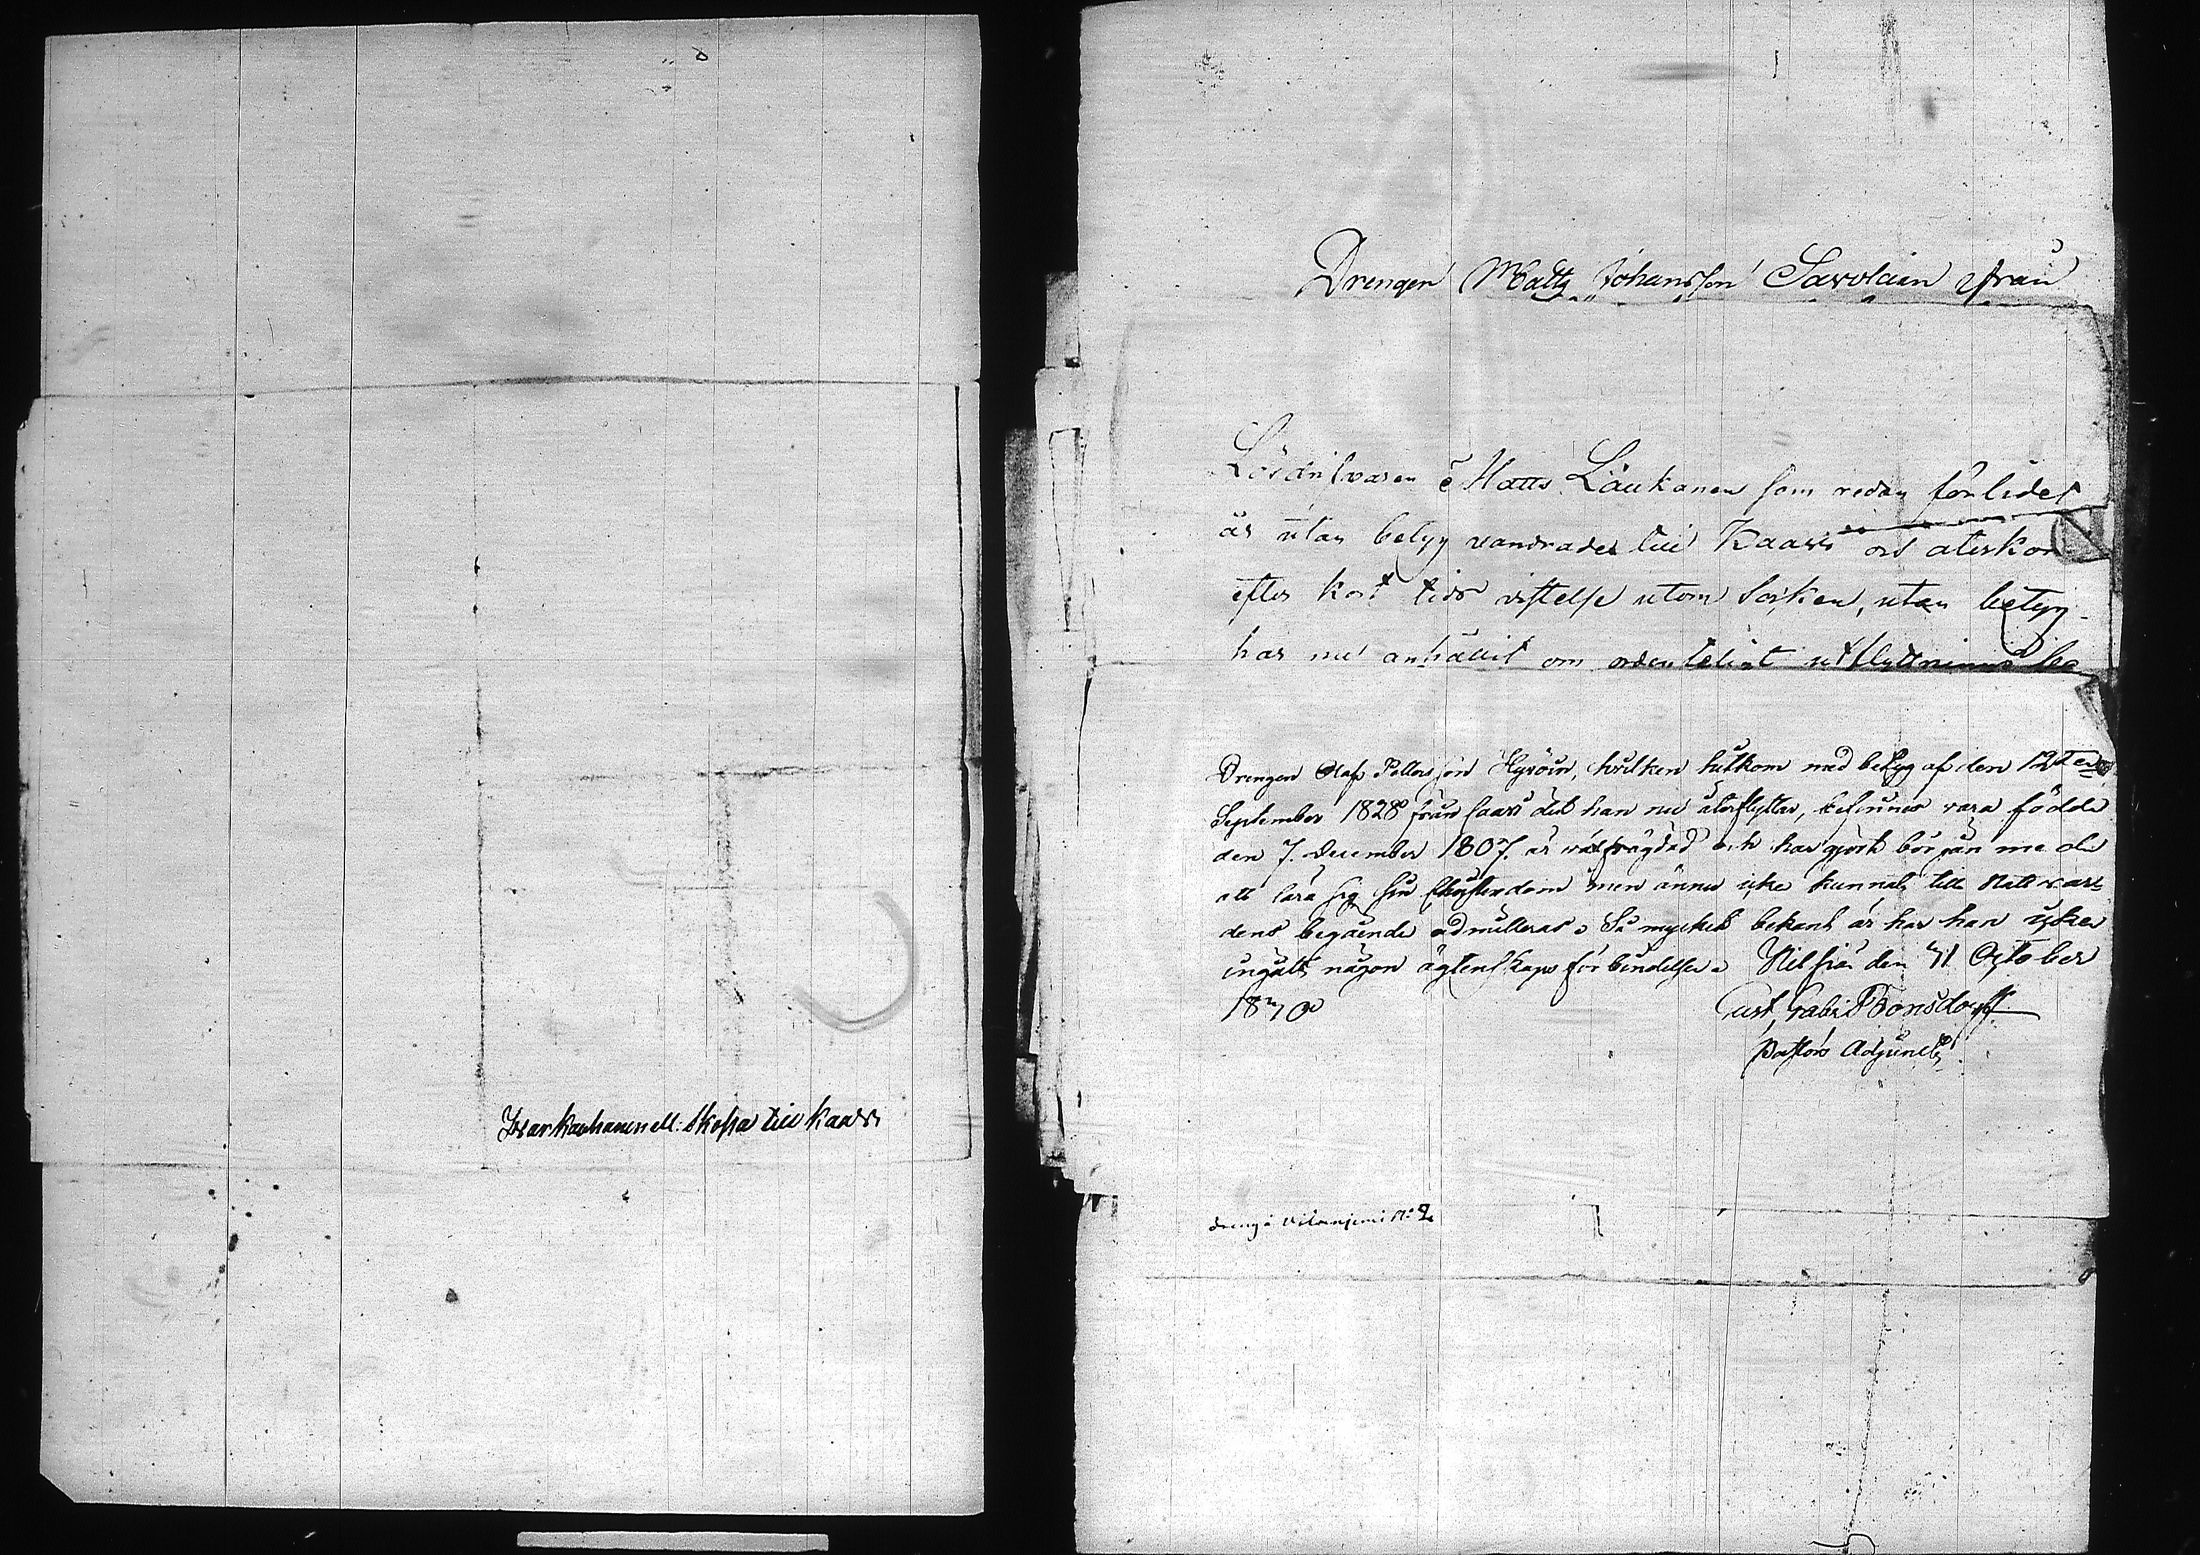 Ivar Kauhanen ell. Skopa till Kaavi
Drengen Matts Johansson Savolain ifrån
Lösdrifvaren Matts Laukanen som redan förlidet
år utan betyg vandrade till Kaavi och återkom
efter kort tids vistelse utom Socken, utan betyg
har nu anhållit om ordenteligt utflyttnings be
Drengen Olof Pettersson Hyvöin, hvilken hitkom med betyg af den 12ten
September 1828 från Caavi dit han nu återflyttar, befinnes vara född
den 7. December 1807. är välfrägdad och har gjort början med
att lära sig sin Christendom men ännu icke kunnat till Nattvar
dens begående admitteras. Så mycket bekant är har han icke
ingått någon ägtenskaps förbindelse. Nilsiä den 31 October
1830
Gust. Gabr. Bonsdorff
Pastors Adjunct
dreng i Vitaniemi No 2